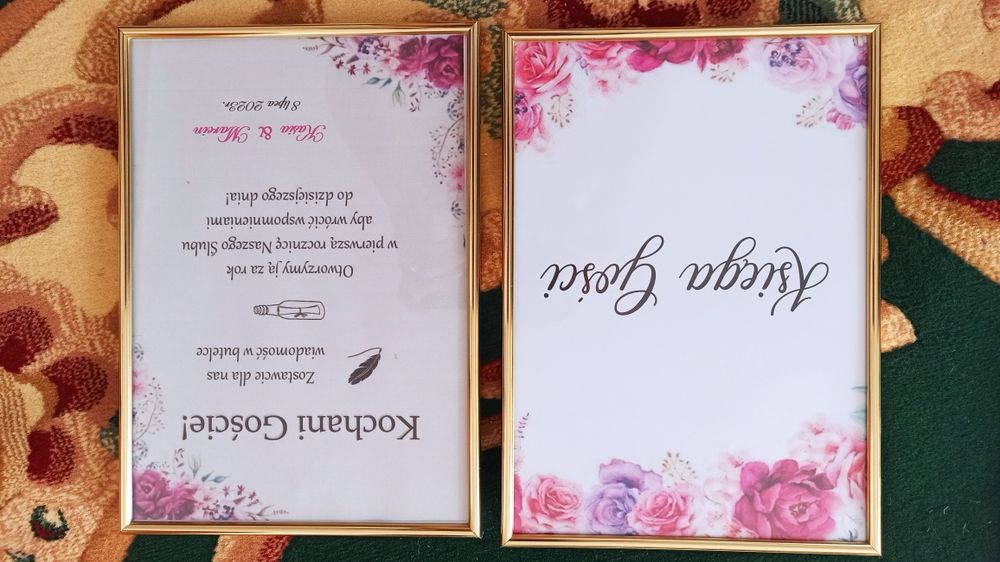 Kochani Goście!
Zostawcie dla nas
wiadomość w butelce
Otworzymy ją za rok
w pierwszą rocznicę Naszego Ślubu
aby wrócić wspomnieniami
do dzisiejszego dnia!
Kasia & Marcin
8 lipca 2023r.
Księga Gości